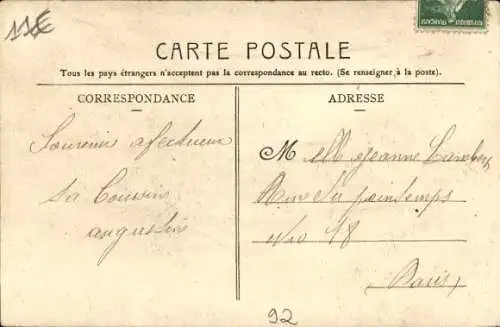 11€
FRANÇAISE
CARTE POSTALE
Tous les pays étrangers n'acceptent pas la correspondance au recto. (Se renseigner à la poste).
CORRESPONDANCE
ADRESSE
Souvenirs afectueux
sa Cousine
augustine
M elle Jeanne Lambert
Rue du printemps
Nro 18
Paris
92